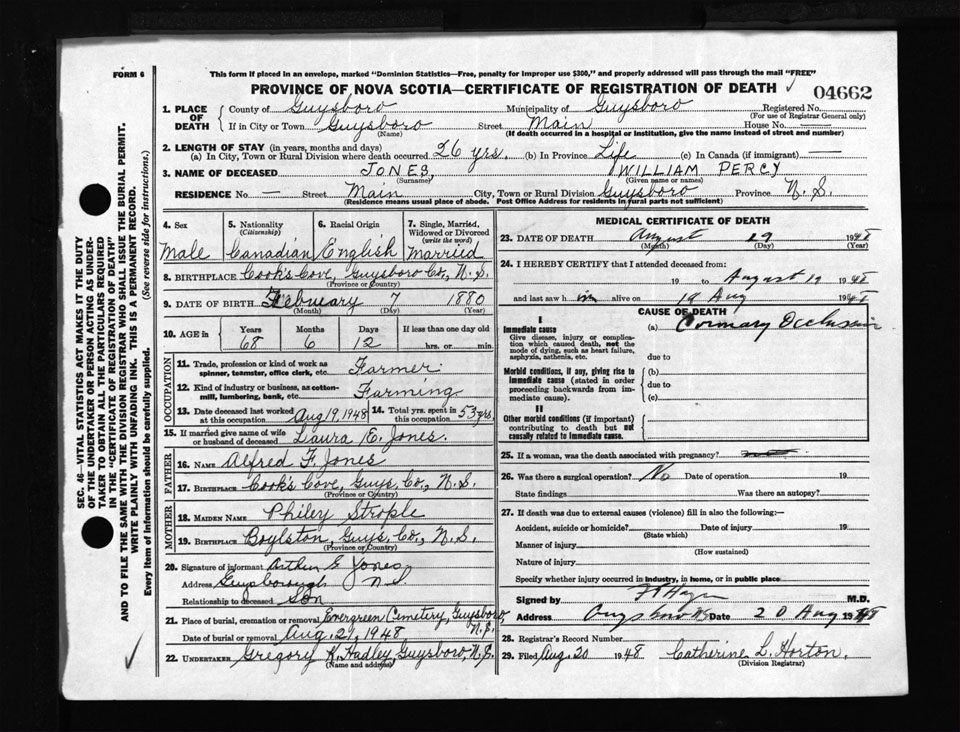 FORM 6
This form if placed in an envelope, marked "Dominion Statistics—Free, penalty for improper use $300," and properly addressed will pass through the mail "FREE"
PROVINCE OF NOVA SCOTIA—CERTIFICATE OF REGISTRATION OF DEATH ✓ 04662
1. PLACE OF DEATH { County of Guysboro Municipality of Guysboro Registered No.
(For use of Registrar General only)
If in City or Town Guysboro Street Main House No. —
(Name) (If death occurred in a hospital or institution, give the name instead of street and number)
2. LENGTH OF STAY (in years, months and days)
(a) In City, Town or Rural Division where death occurred 26 yrs. (b) In Province Life (c) In Canada (if immigrant) —
3. NAME OF DECEASED JONES, WILLIAM PERCY
(Surname) (Given name or names)
RESIDENCE No. — Street Main City, Town or Rural Division Guysboro Province N.S.
(Residence means usual place of abode. Post Office Address for residents in rural parts not sufficient)
4. Sex 5. Nationality (Citizenship) 6. Racial Origin 7. Single, Married, Widowed or Divorced (write the word)
Male Canadian English Married
8. BIRTHPLACE Cook's Cove, Guysboro Co., N.S.
(Province or Country)
9. DATE OF BIRTH February 7 1880
(Month) (Day) (Year)
10. AGE in { Years Months Days If less than one day old
68 6 12 hrs. or min.
OCCUPATION
11. Trade, profession or kind of work as spinner, teamster, office clerk, etc. Farmer
12. Kind of industry or business, as cotton-mill, lumbering, bank, etc. Farming
13. Date deceased last worked at this occupation Aug 19, 1948 14. Total yrs. spent in this occupation 53 yrs.
15. If married give name of wife or husband of deceased Laura E. Jones.
FATHER
16. NAME Alfred F. Jones
17. BIRTHPLACE Cook's Cove, Guys. Co., N.S.
(Province or Country)
MOTHER
18. MAIDEN NAME Philey Strople
19. BIRTHPLACE Boylston, Guys. Co., N.S.
(Province or Country)
20. Signature of informant Arthur G Jones
Address Guysborough N.S.
Relationship to deceased Son
21. Place of burial, cremation or removal Evergreen Cemetery, Guysboro, N.S.
Date of burial or removal Aug. 21, 1948
22. UNDERTAKER Gregory K. Hadley, Guysboro, N.S.
(Name and address)
MEDICAL CERTIFICATE OF DEATH
23. DATE OF DEATH August 19 1948
(Month) (Day) (Year)
24. I HEREBY CERTIFY that I attended deceased from:
19 to August 19 1948
and last saw him alive on 19 Aug 1948
CAUSE OF DEATH
I
Immediate cause (a) Coronary Occlusion
Give disease, injury or complication which caused death, not the mode of dying, such as heart failure, asphyxia, asthenia, etc.
due to
Morbid conditions, if any, giving rise to immediate cause (stated in order proceeding backwards from immediate cause).
(b)
due to
(c)
II
Other morbid conditions (if important) contributing to death but not causally related to immediate cause.
25. If a woman, was the death associated with pregnancy?
26. Was there a surgical operation? No Date of operation 19
State findings Was there an autopsy?
27. If death was due to external causes (violence) fill in also the following:—
Accident, suicide or homicide? Date of injury 19
(State which)
Manner of injury
(How sustained)
Nature of injury
Specify whether injury occurred in industry, in home, or in public place
Signed by M.D.
Address Guysboro NS Date 20 Aug 1948
28. Registrar's Record Number
29. Filed Aug. 20 1948 Catherine L. Horton.
(Division Registrar)
SEC. 46—VITAL STATISTICS ACT MAKES IT THE DUTY
OF THE UNDERTAKER OR PERSON ACTING AS UNDER-
TAKER TO OBTAIN ALL THE PARTICULARS REQUIRED
IN THE "CERTIFICATE OF REGISTRATION OF DEATH"
AND TO FILE THE SAME WITH THE DIVISION REGISTRAR WHO SHALL ISSUE THE BURIAL PERMIT.
WRITE PLAINLY WITH UNFADING INK. THIS IS A PERMANENT RECORD.
Every item of information should be carefully supplied. (See reverse side for instructions.)